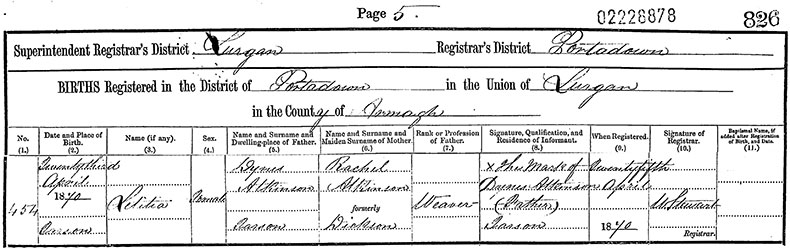 Page 5.
02228878
826
Superintendent Registrar's District Lurgan Registrar's District Portadown
BIRTHS Registered in the District of Portadown in the Union of Lurgan
in the County of Armagh
No. (1.)
Date and Place of Birth. (2.)
Name (if any). (3.)
Sex. (4.)
Name and Surname and Dwelling-place of Father. (5.)
Name and Surname and Maiden Surname of Mother. (6.)
Rank or Profession of Father. (7.)
Signature, Qualification, and Residence of Informant. (8.)
When Registered. (9.)
Signature of Registrar. (10.)
Baptismal Name, if added after Registration of Birth, and Date. (11.)
454
Twenty third
April
1870
Letitia
Female
Atkinson
Rachel
Atkinson
formerly
Dickson
Weaver
x The Mark of
Atkinson
(Father)
Twenty fifth
April
1870
W Stewart
Registrar.